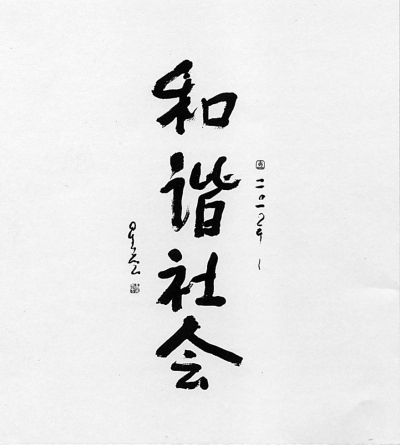 二〇一〇年
和谐社会
星云